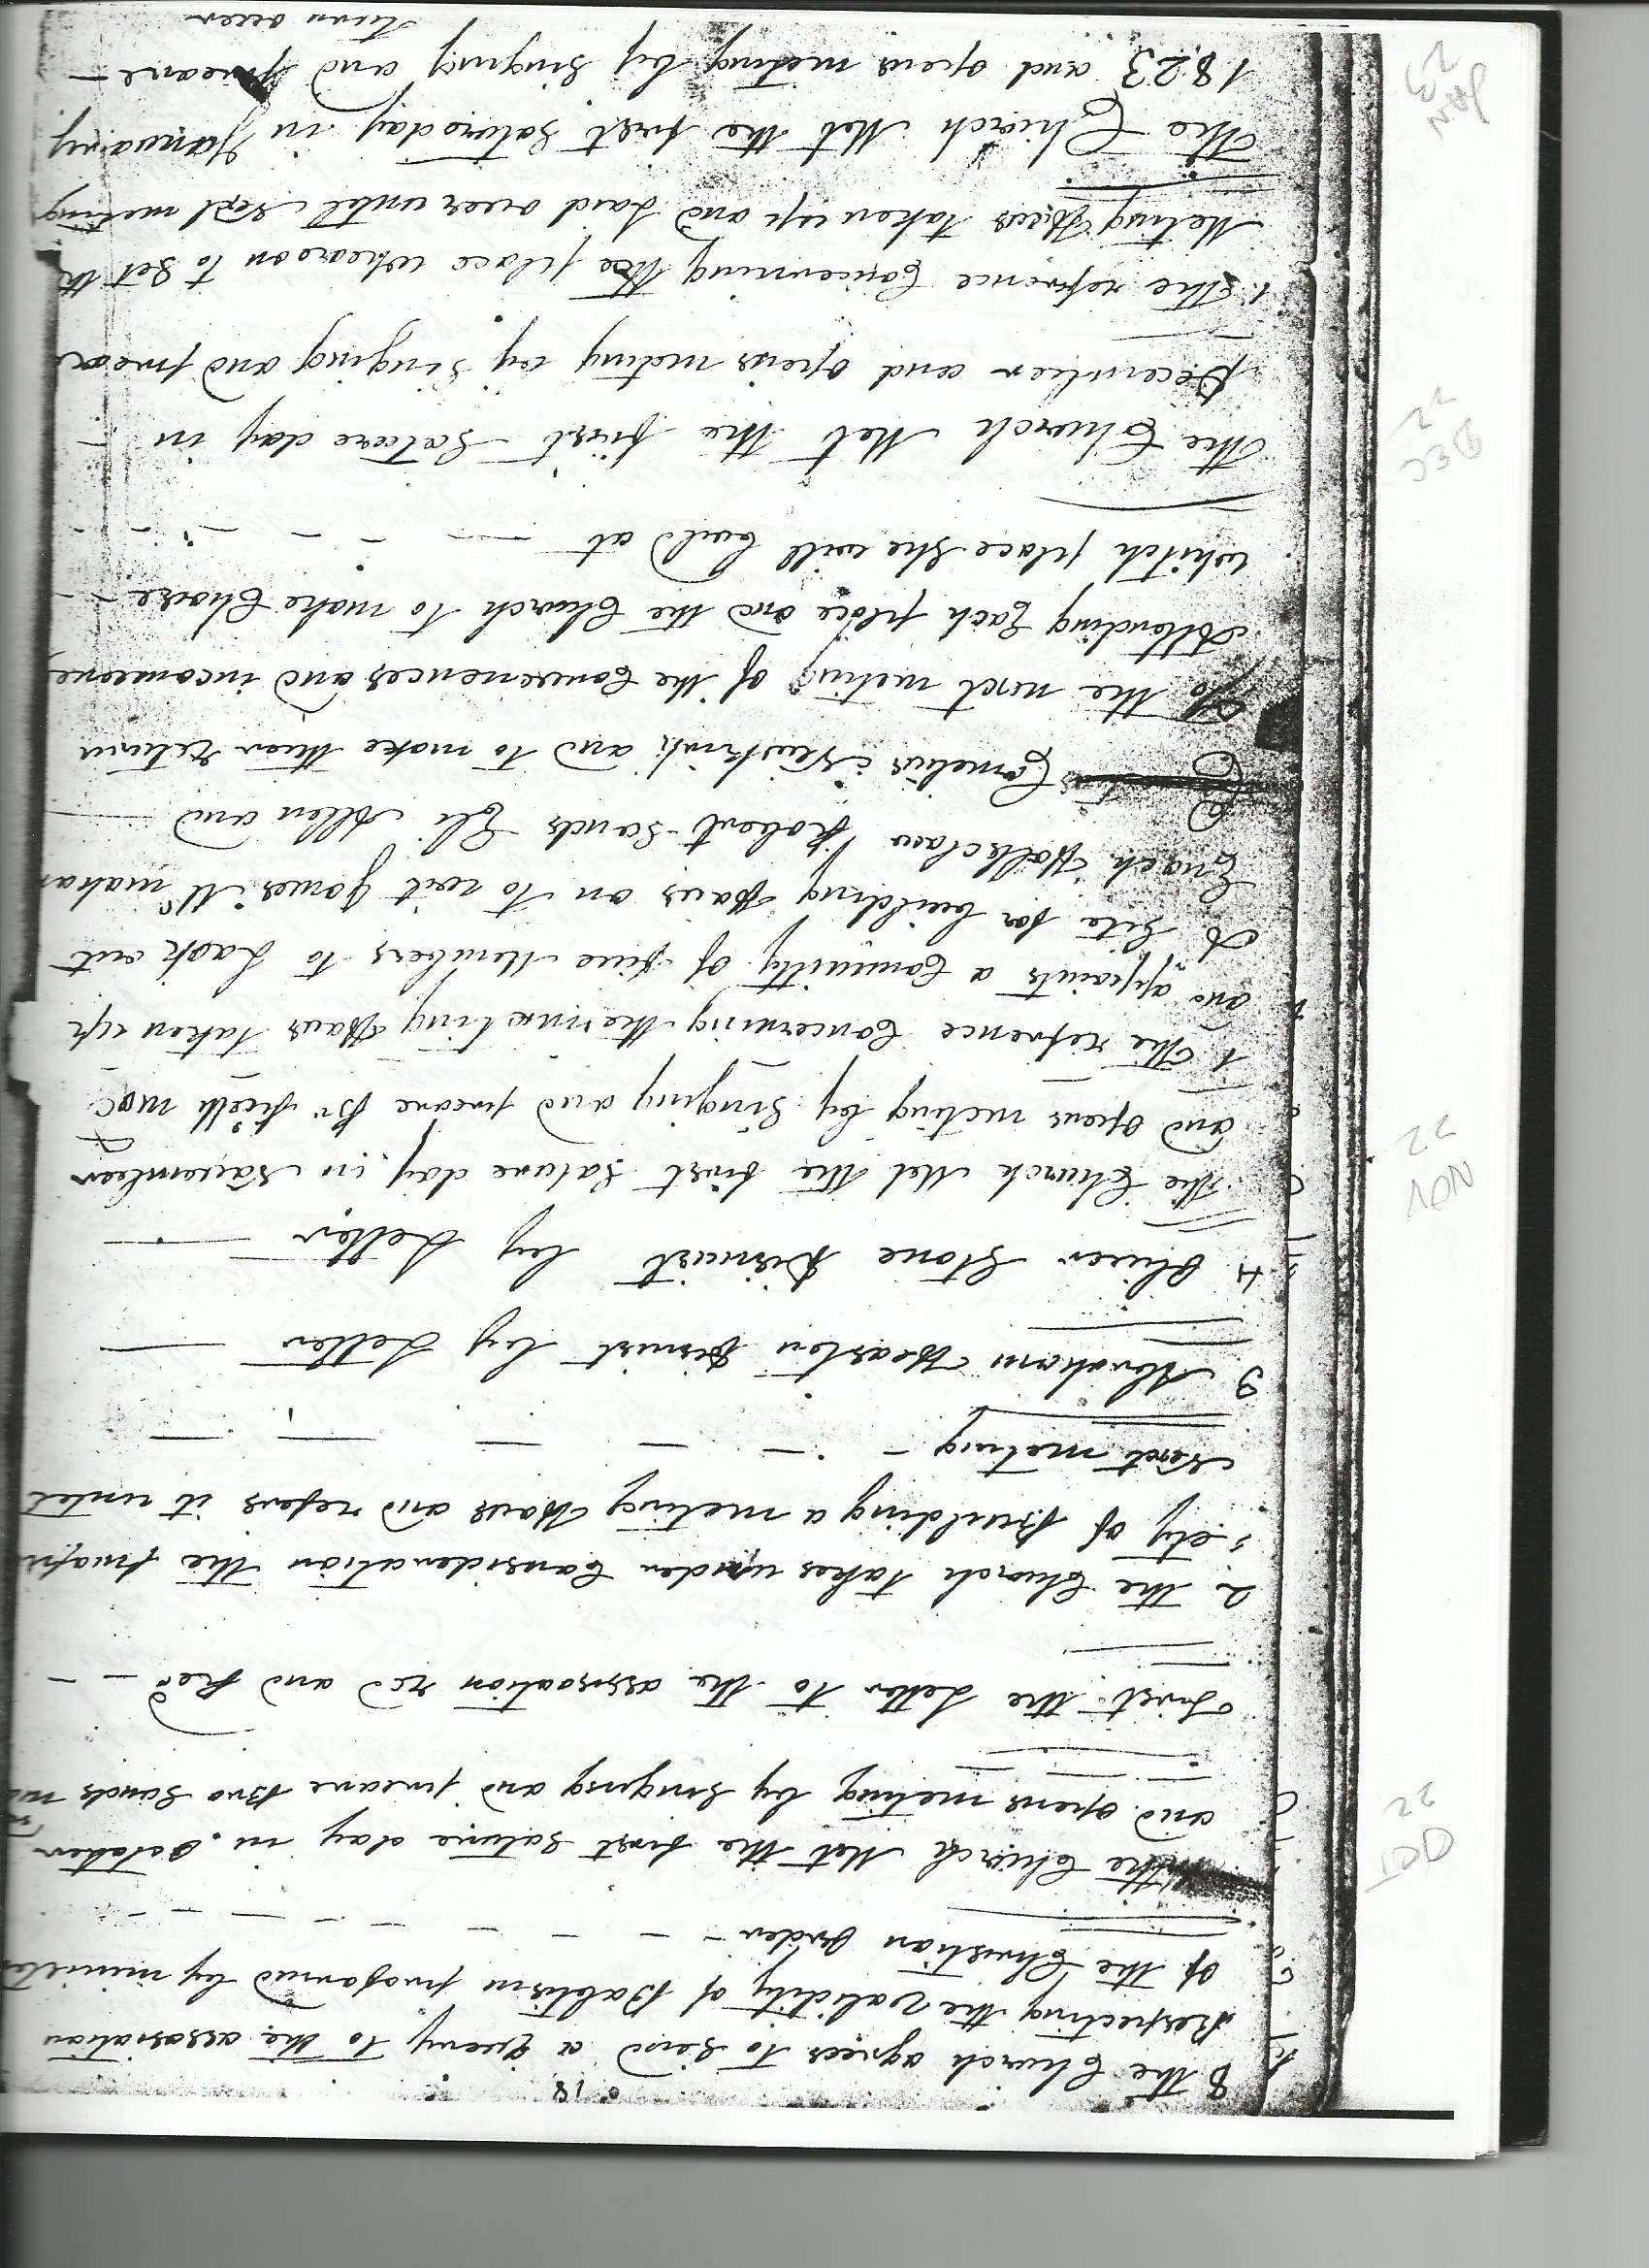 18
8 the Church agrees to Send a Queary to the assosiation
Respecting the validity of Babtism proformed by minister
of the Christian order
OCT 22
the Church Met the first Sature day in October
and opens meting by Singing and preare Bro Sands
First the Letter to the assosation red and
2 the Church takes under Consideration the propri
ety of Building a meting Hous and refers it until
Next meting
3 Abraham Heaston Dismist by Letter
4 Oliver Stone Dismist by Letter
NOV 22
the Church Met the first Sature day in Naovember
and opens meting by Singing and preare Br
1 the refrence Concerning the meeting Hous taken up
and appoints a Committy of five Members to Look out
A Site for building Hous on to wit James
Enoch Holsclaw Robert Sands Eli Allen and
Cornelius and to make their Return
To the next meting of the Conveniences and inconvene
Attending Each place and the Church to make Choare
Whitch place she will build at
DEC 22
The Church Met the first Sature day in
December and opens meting by Singing and preare
1 The refrence Concerning the place whearon to Set the
Meting Hous taken up and Laid over until Next meeting
JAN 23
The Church Met the first Saturday in January
1823 and opens meeting by Singing and preare